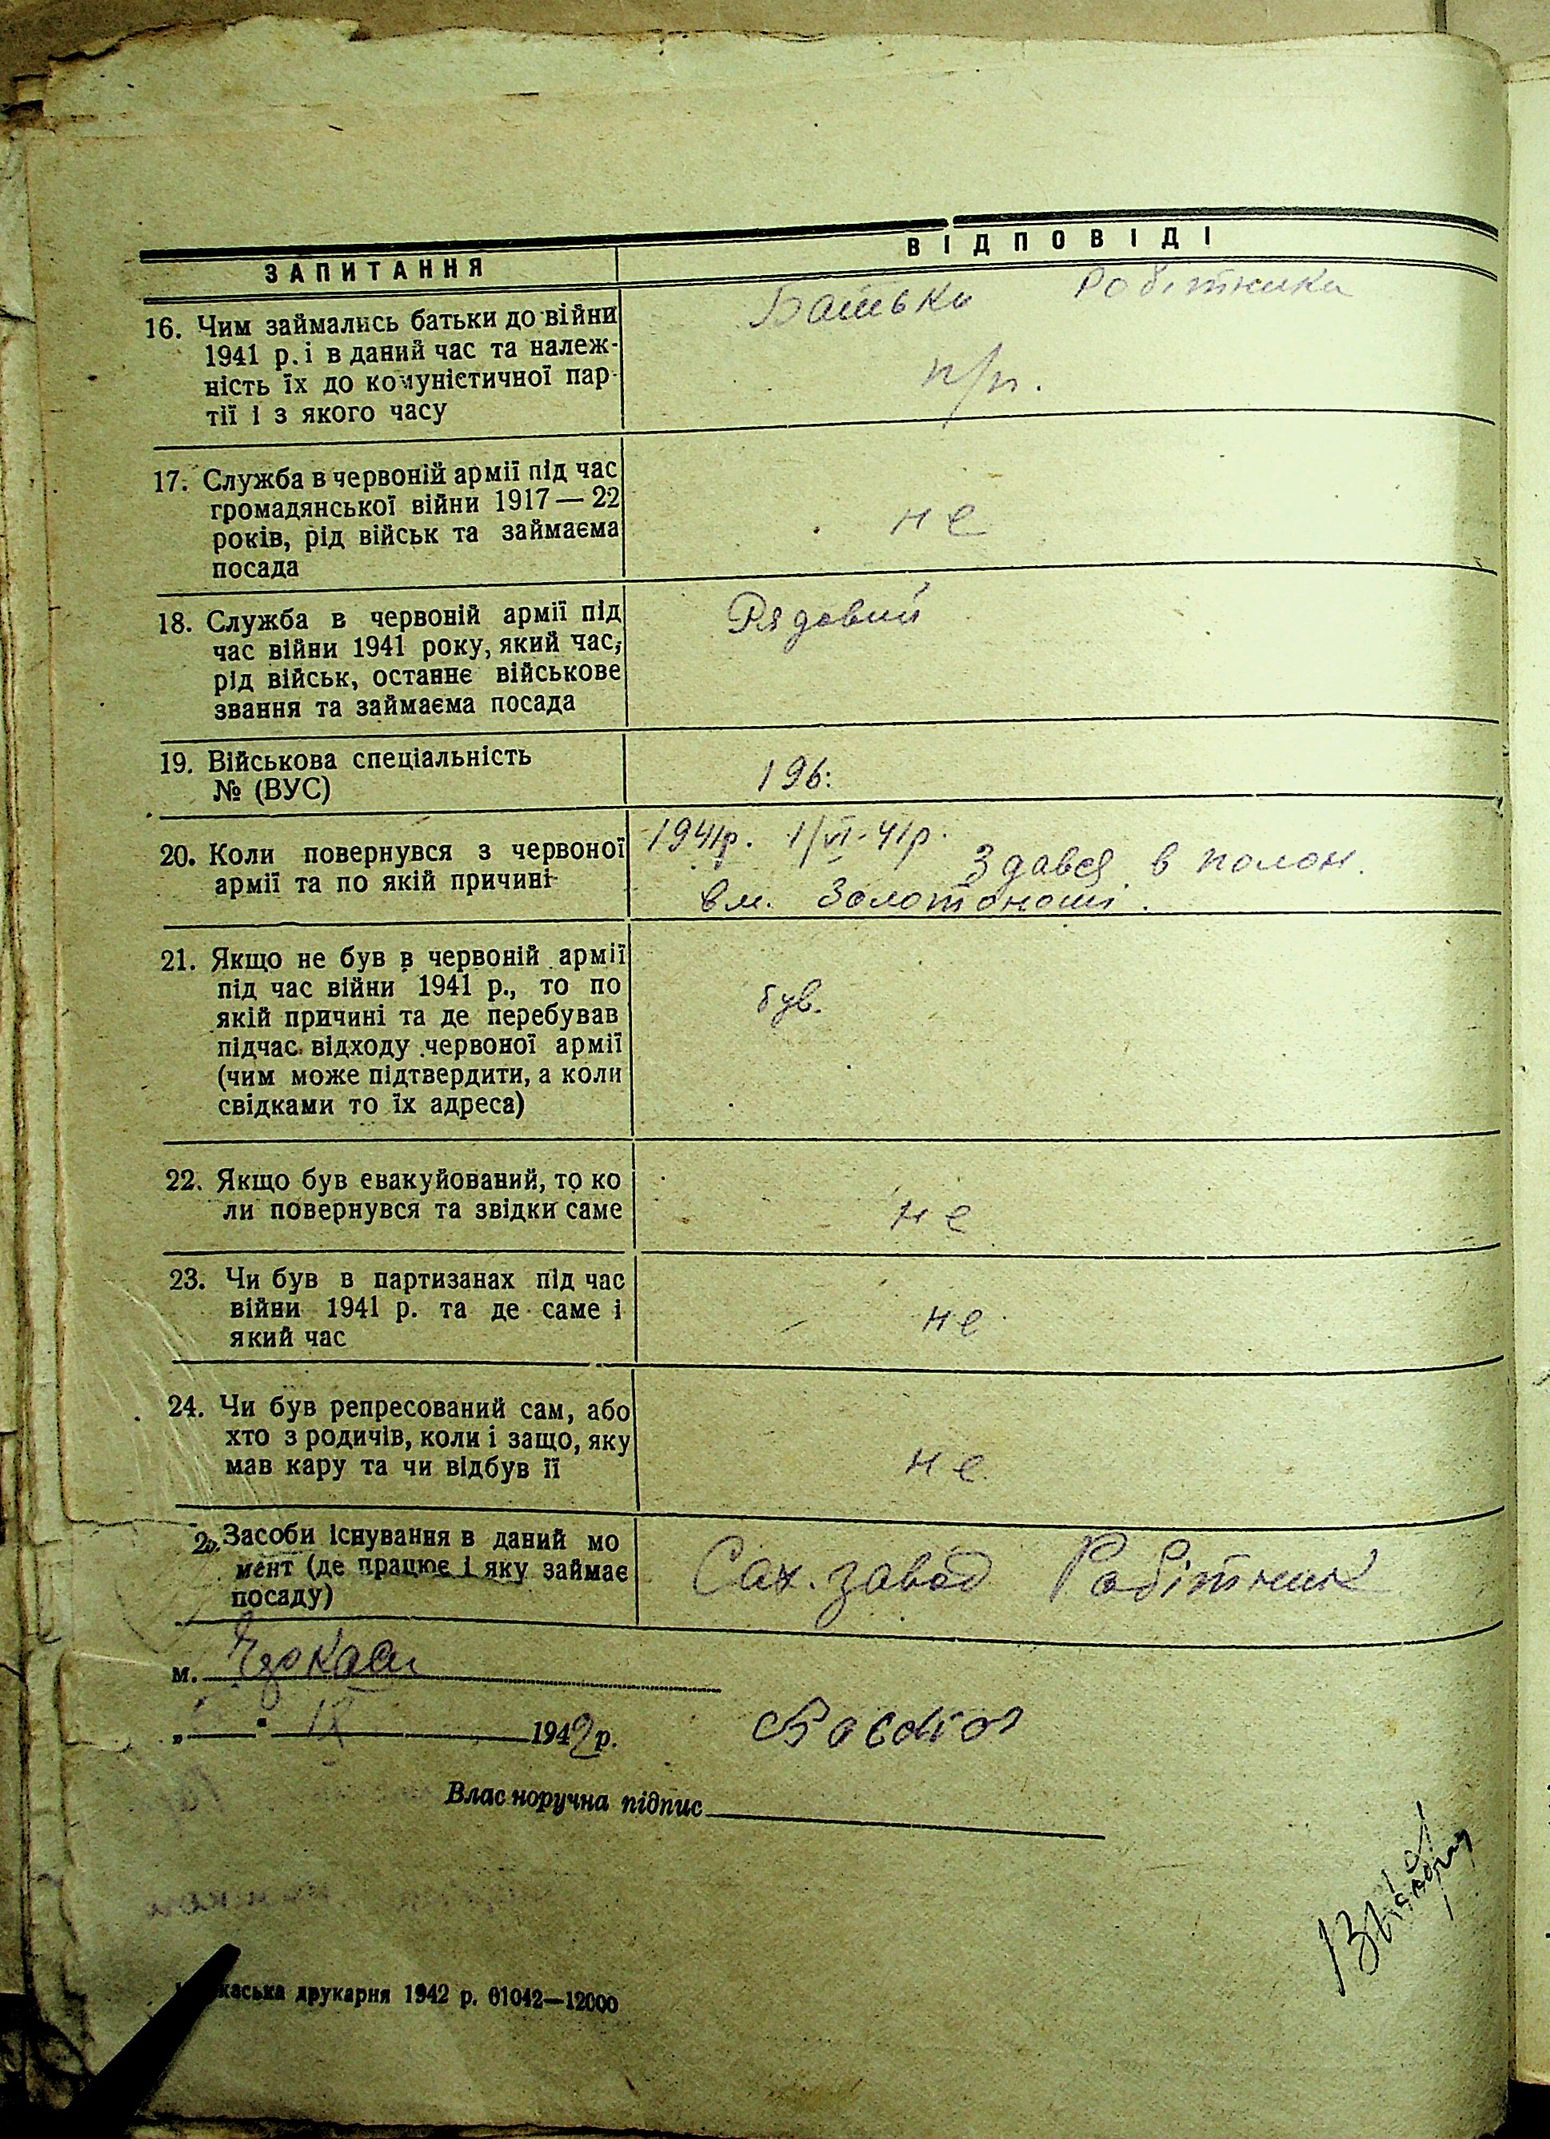 ЗАПИТАННЯ
ВІДПОВІДІ
16. Чим займались батьки до війни
1941 р. і в даний час та належ-
ність їх до комуністичної пар-
тії і з якого часу
Батьки Робітники
п/р.
17. Служба в червоній армії під час
громадянської війни 1917—22
років, рід військ та займаєма
посада
не
18. Служба в червоній армії під
час війни 1941 року, який час,
рід військ, останнє військове
звання та займаєма посада
Рядовий
19. Військова спеціальність
№ (ВУС)
196:
20. Коли повернувся з червоної
армії та по якій причині
1941р. 1/VI-41р.
Здався в полон.
в м. Золотоноші.
21. Якщо не був в червоній армії
під час війни 1941 р., то по
якій причині та де перебував
підчас відходу червоної армії
(чим може підтвердити, а коли
свідками то їх адреса)
був.
22. Якщо був евакуйований, то ко
ли повернувся та звідки саме
не
23. Чи був в партизанах під час
війни 1941 р. та де саме і
який час
не
24. Чи був репресований сам, або
хто з родичів, коли і защо, яку
мав кару та чи відбув її
не
Засоби існування в даний мо
мент (де працює і яку займає
посаду)
Сах. завод Робітник
м. Черкаси
„ " IX 1942 р.
Власноручна підпис
друкарня 1942 р. 01042—12000